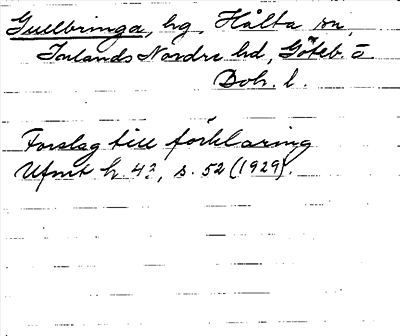 Gullbringa, hg, Hålta sn,
Inlands Nordre hd, Göteb. o
Boh. l.
Förslag till förklaring
Ufmt h. 43, s. 52 (1929).